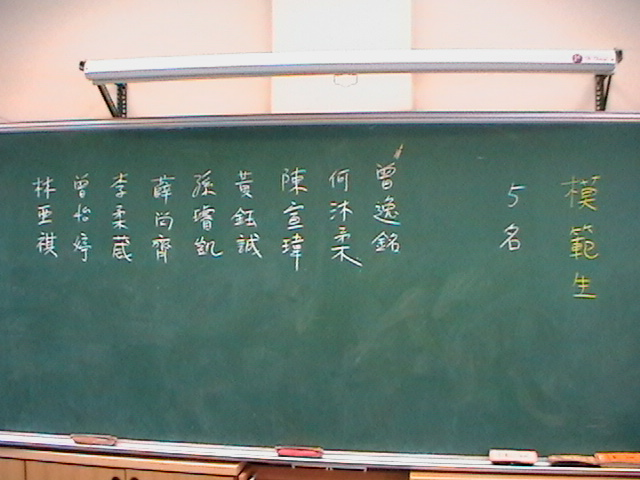 模範生
5名
曾逸銘
何沐柔
陳宣瑋
黃鈺誠
孫睿凱
薛尚齊
李柔葳
曾怡婷
林亞祺